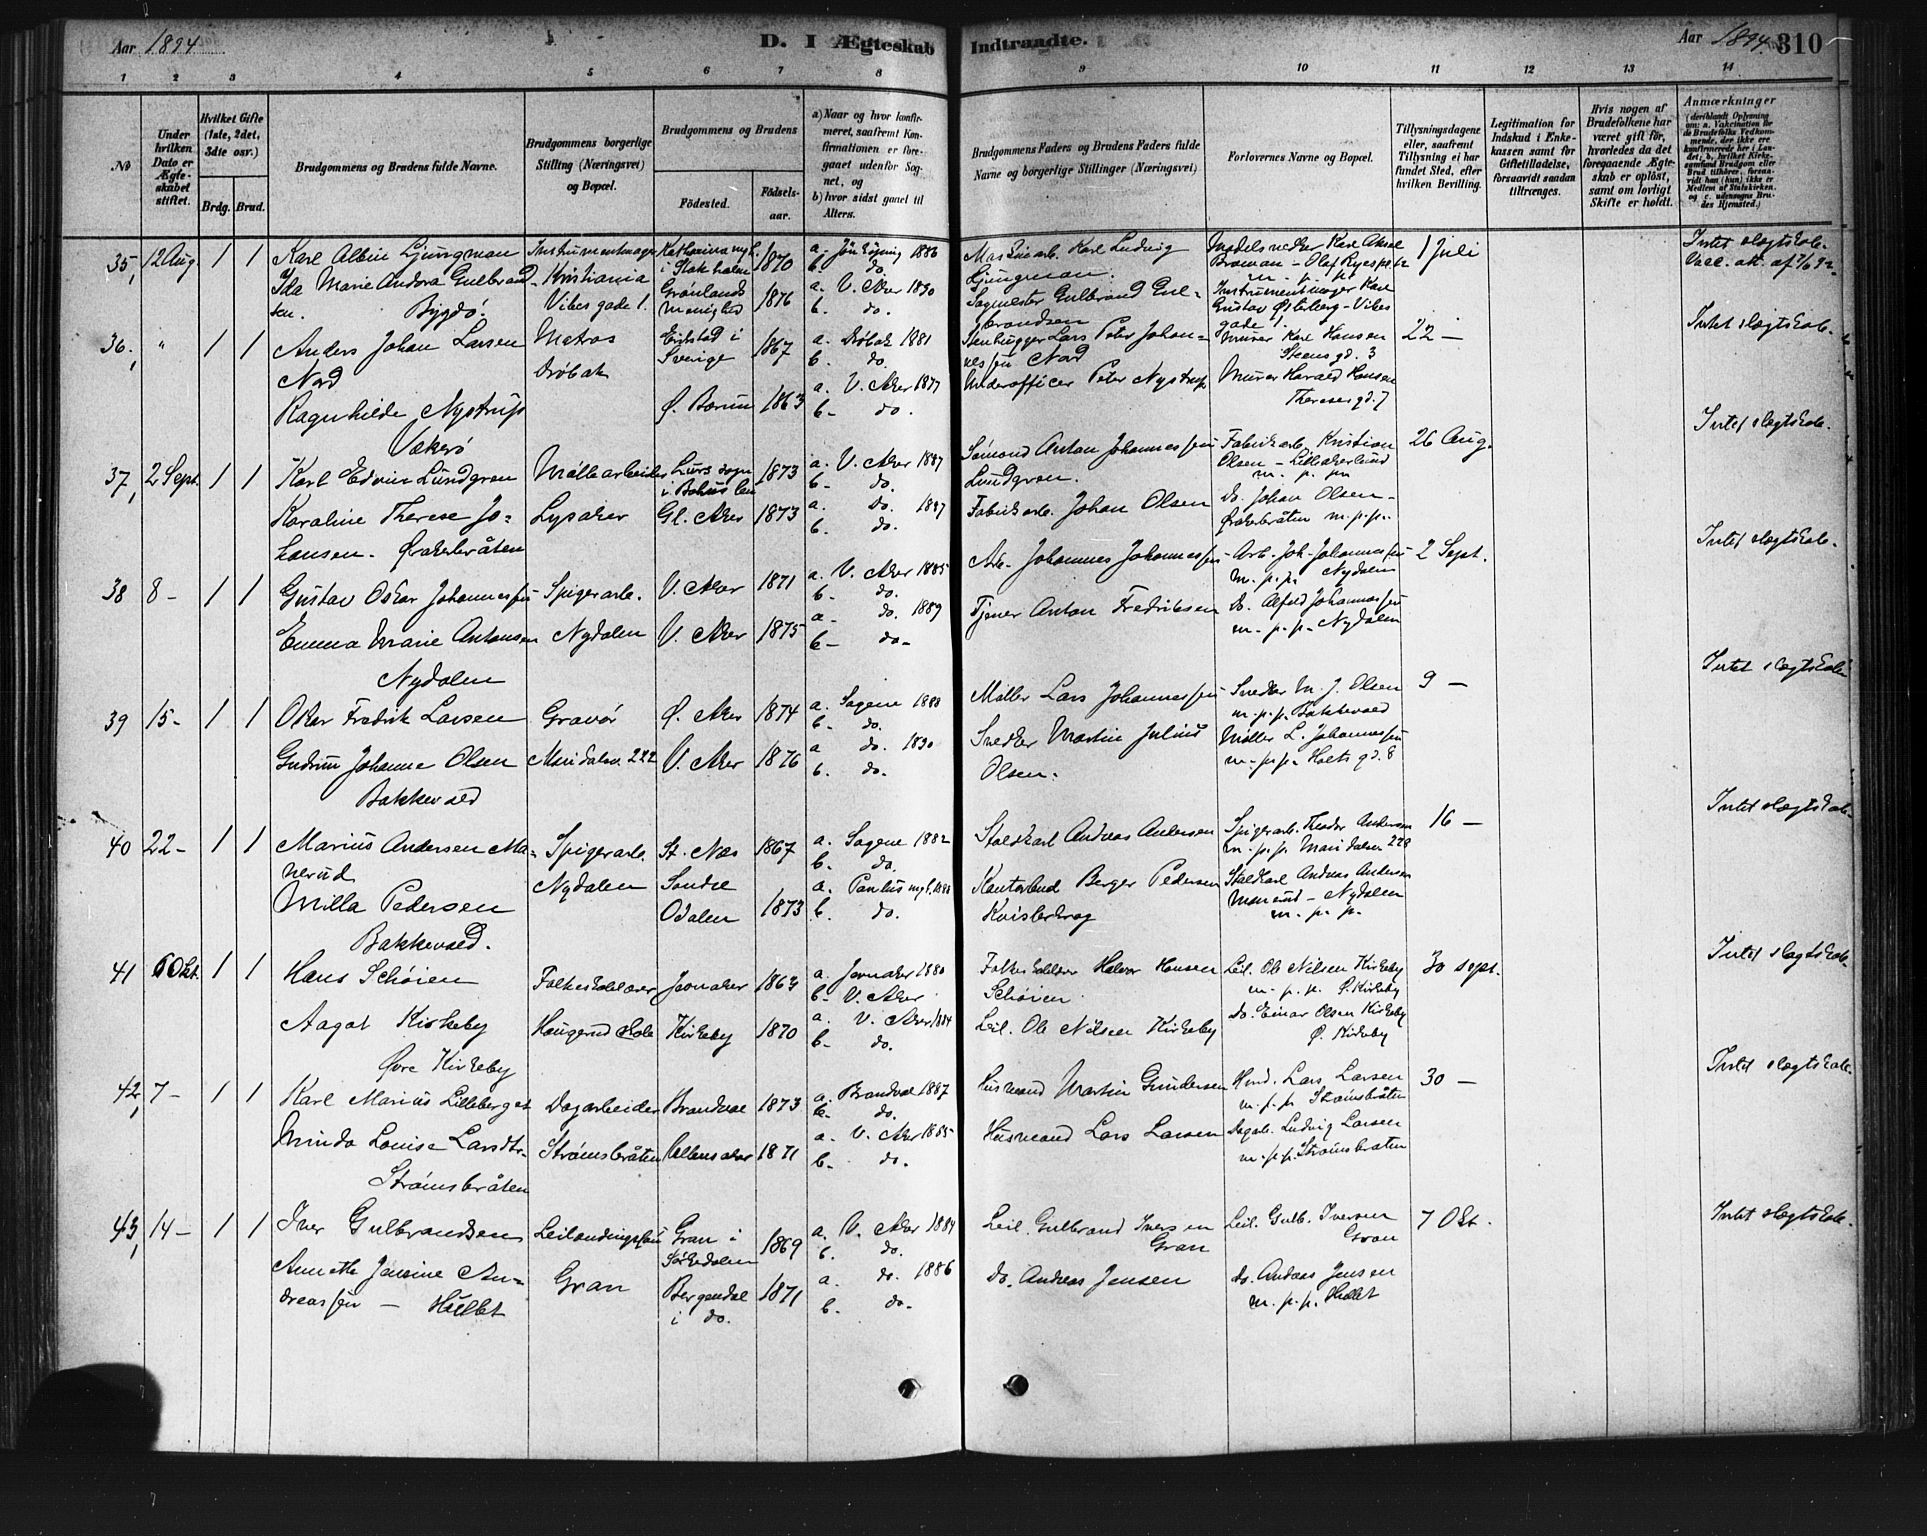 Aar 1894. D. I Ægteskab Indtraadte. Aar 1894. 310
1 2 3 4 5 6 7 8 9 10 11 12 13 14
No
Under hvilken Dato er Ægteskabet stiftet.
Hvilket Gifte (1ste, 2det, 3die osv.)
Brdg. Brud.
Brudgommens og Brudens fulde Navne.
Brudgommens borgerlige Stilling (Næringsvei) og Bopæl.
Brudgommens og Brudens
Fødested. Fødselsaar.
a) Naar og hvor konfirmeret, saafremt Konfirmationen er foregaaet udenfor Sognet, og
b) hvor sidst gaaet til Alters.
Brudgommens Faders og Brudens Faders fulde Navne og borgerlige Stillinger (Næringsvei)
Forlovernes Navne og Bopæl.
Tillysningsdagene eller, saafremt Tillysning ei har fundet Sted, efter hvilken Bevilling.
Legitimation for Indskud i Enkekassen samt for Giftetilladelse, forsaavidt saadan tiltrænges.
Hvis nogen af Brudefolkene har været gift før, hvorledes da det foregaaende Ægteskab er opløst, samt om lovligt Skifte er holdt.
Anmærkninger
35, 12 Aug 1 1 Karl Albin Ljungman Instrumentmager Katharina mgh. i Stokholm 1870 a. Jönköping 1886 b. do. Maskinarb. Karl Ludvig Ljungman. Modelsnedker Karl Aksel Broman - Olaf Ryes pl. m. p. p. 1 Juli Intet slægtskab.
Ida Marie Andora Gulbrandsen. Bygdö. Kristiania Vibes gade 1. Grønlands menighed 1876 a. V. Aker 1890 b. do. Sagmester Gulbrand Gulbrandsen Instrumentmager Karl Gustav Østerberg - Vibes gade 1.
36, " 1 1 Anders Johan Larsen Nord Matros Drøbak i Sverige 1867 a. Drøbak 1881 b. do. Stenhugger Lars Peter Johannessen Nord Murer Karl Hansen Steensgd. 3 22 - Intet slægtskab.
Ragnhilde Nystrup Vækerø Ø. Bærum 1863 a. V. Aker 1877 b- do. Underofficer Peter Nystrup Murer Harald Hansen Theresesgd. 7
37, 2 Sept. 1 1 Karl Edvin Lundgren Møllearbeider Lurs sogn i Bohus len 1873 a. V. Aker 1887 b- do. Sömand Anton Johannessen Lundgren. Fabrikarb. Kristian Olsen - Lilleakerlund m. p. p. 26 Aug. Intet slægtskab.
Karoline Therese Johansen. Øvakerbråten Lysaker Gl. Aker 1873 a. do. 1887 b- do. Fabrikarb. Johan Olsen do. Johan Olsen - Øvakerbråten m.p.p.
38 8 - 1 1 Gustav Oskar Johannessen Spigerarb. V. Aker 1871 a. V. Aker 1885 b- do. Arb. Johannes Johannessen Arb. Joh. Johannessen m. p. p. Nydalen 2 Sept. Intet slægtskab.
Emma Marie Antonsen Nydalen Nydalen V. Aker 1875 a- do. 1889 b- do- Tjener Anton Fredriksen do. Alfred Johannessen m. p. p. Nydalen
39 15 - 1 1 Oskar Fredrik Larsen Gravør Ø. Aker 1874 a. Sagene 1888 b- do. Møller Lars Johannessen Snedker M. J. Olsen m. p. p. Bakkevold 9 - Intet slægtskab
Gudrun Johanne Olsen Bakkevold Maridalsv. 222 V. Aker 1876 a do. 1890 b. do. Snedker Martin Julius Olsen. Møller L. Johannessen m. p. p. Holts gd. 8
40 22 - 1 1 Marius Andersen Manerud Spigerarb. Nydalen St. Næs 1867 a. Sagene 1882 b- do. Staldkarl Andreas Andersen Spigerarb. Theodor Andersen m. p. p. Maridalen 228 16 - Intet slægtskab.
Milla Pedersen Bakkevold. Søndre Odalen 1873 a. Paulus mgh. 1888 b. do. Kontorbud Berger Pedersen Kvislerkrog Staldkarl Andreas Andersen Manerud - Nydalen m. p. p.
41 6 Okt. 1 1 Hans Schöien Folkeskolelærer Jevnaker 1863 a. Jevnaker 1880 b- V. Aker. Folkeskolelærer Halvor Hansen Schöien. Leil. Ole Nilsen Kirkeby m. p. p. Ø. Kirkeby 30 Sept. Intet slægtskab.
Aagot Kirkeby Øvre Kirkeby Haugerud skole Kirkeby 1870 a. V. Aker 1884 b- do. Leil. Ole Nilsen Kirkeby do. Einar Olsen Kirkeby Ø. Kirkeby
42, 7 - 1 1 Karl Marius Lilleberget Dagarbeider Brandval 1873 a. Brandval 1887 b- do. Husmand Martin Gundersen Husmd. Lars Larsen m. p. p. Strømsbråten 30 - Intet slægtskab.
Minda Louise Larsdtr. Strømsbråten Strømsbråten Ullensaker 1871 a. V. Aker 1885 b- do. Husmand Lars Larsen Dagarb. Ludvig Larsen m. p. p. Strømsbråten
43, 14 - 1 1 Iver Gulbrandsen Leilændingssøn Gran i Sørkedalen 1869 a. V. Aker 1884 b. do. Leil. Gulbrand Iversen Gran Leil. Gulb. Iversen Gran 7 Okt. Intet slægtskab.
Annette Jensine Andreassen - Hullet Gran Bergendal i do. 1871 a. do. 1886 b. do. do. Andreas Jensen do. Andreas Jensen m. p. p. Hullet